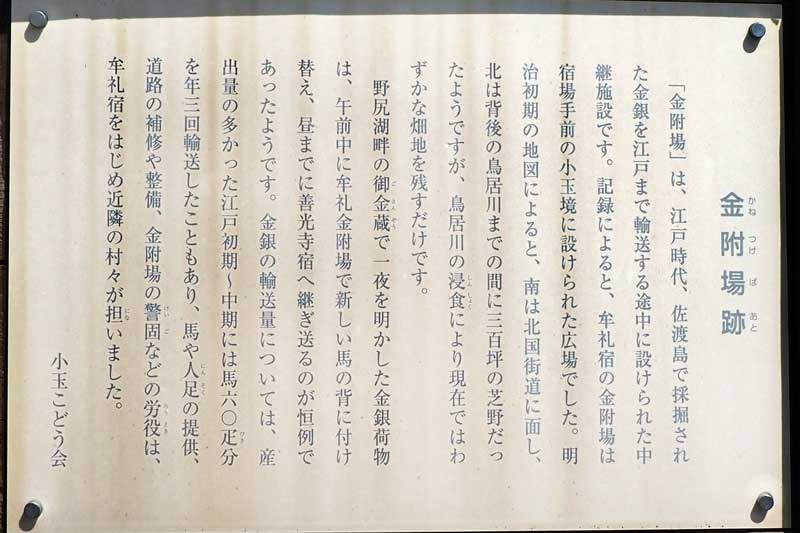 金附場跡
かねつけばあと
「金附場」は、江戸時代、佐渡島で採掘され
た金銀を江戸まで輸送する途中に設けられた中
継施設です。記録によると、牟礼宿の金附場は
宿場手前の小玉境に設けられた広場でした。明
治初期の地図によると、南は北国街道に面し、
北は背後の鳥居川までの間に三百坪の芝野だっ
たようですが、鳥居川の浸食により現在ではわ
しんしょく
ずかな畑地を残すだけです。
野尻湖畔の御金蔵で一夜を明かした金銀荷物
ごきんぞう
は、午前中に牟礼金附場で新しい馬の背に付け
替え、昼までに善光寺宿へ継ぎ送るのが恒例で
あったようです。金銀の輸送量については、産
出量の多かった江戸初期〜中期には馬六〇疋分
ひき
を年三回輸送したこともあり、馬や人足の提供、
にんそく
道路の補修や整備、金附場の警固などの労役は、
けいご
ろうえき
牟礼宿をはじめ近隣の村々が担いました。
にな
小玉こどう会